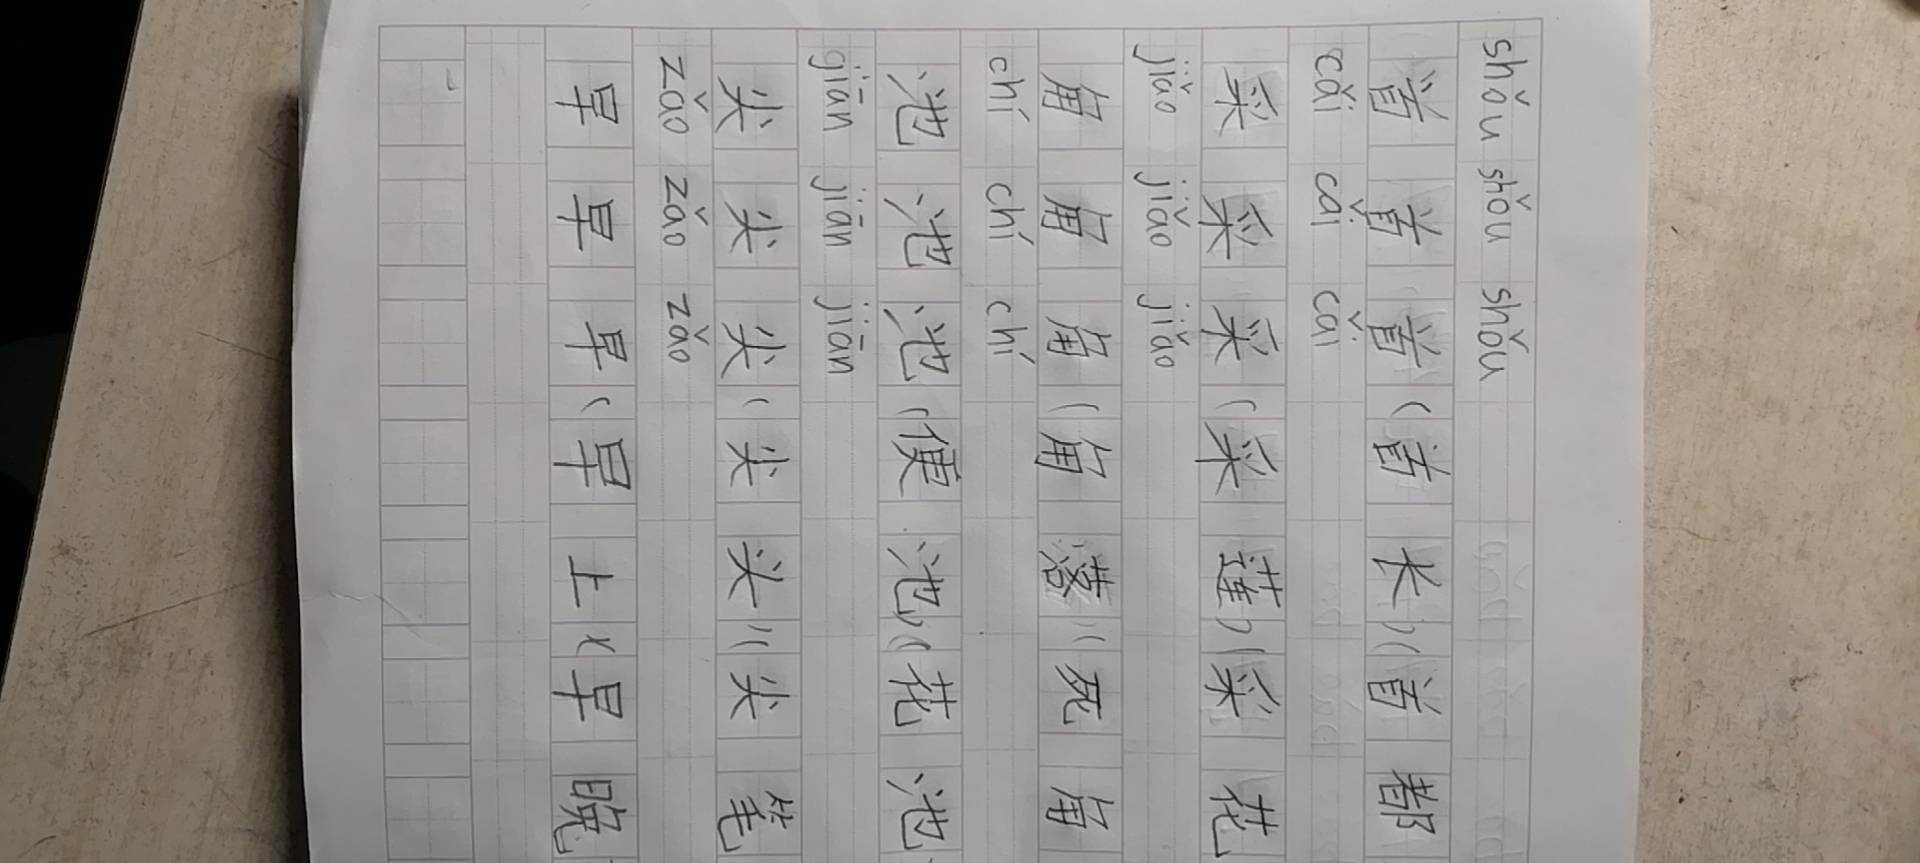 shǒu shǒu shǒu
首首首(首长)(首都
cǎi cǎi cǎi
采采采(采莲)(采花
jiǎo jiǎo jiǎo
角角角(角落)(死角
chí chí chí
池池池(便池)(花池
jiān jiān jiān
尖尖尖(尖头)(尖笔
zǎo zǎo zǎo
早早早(早上)(早晚